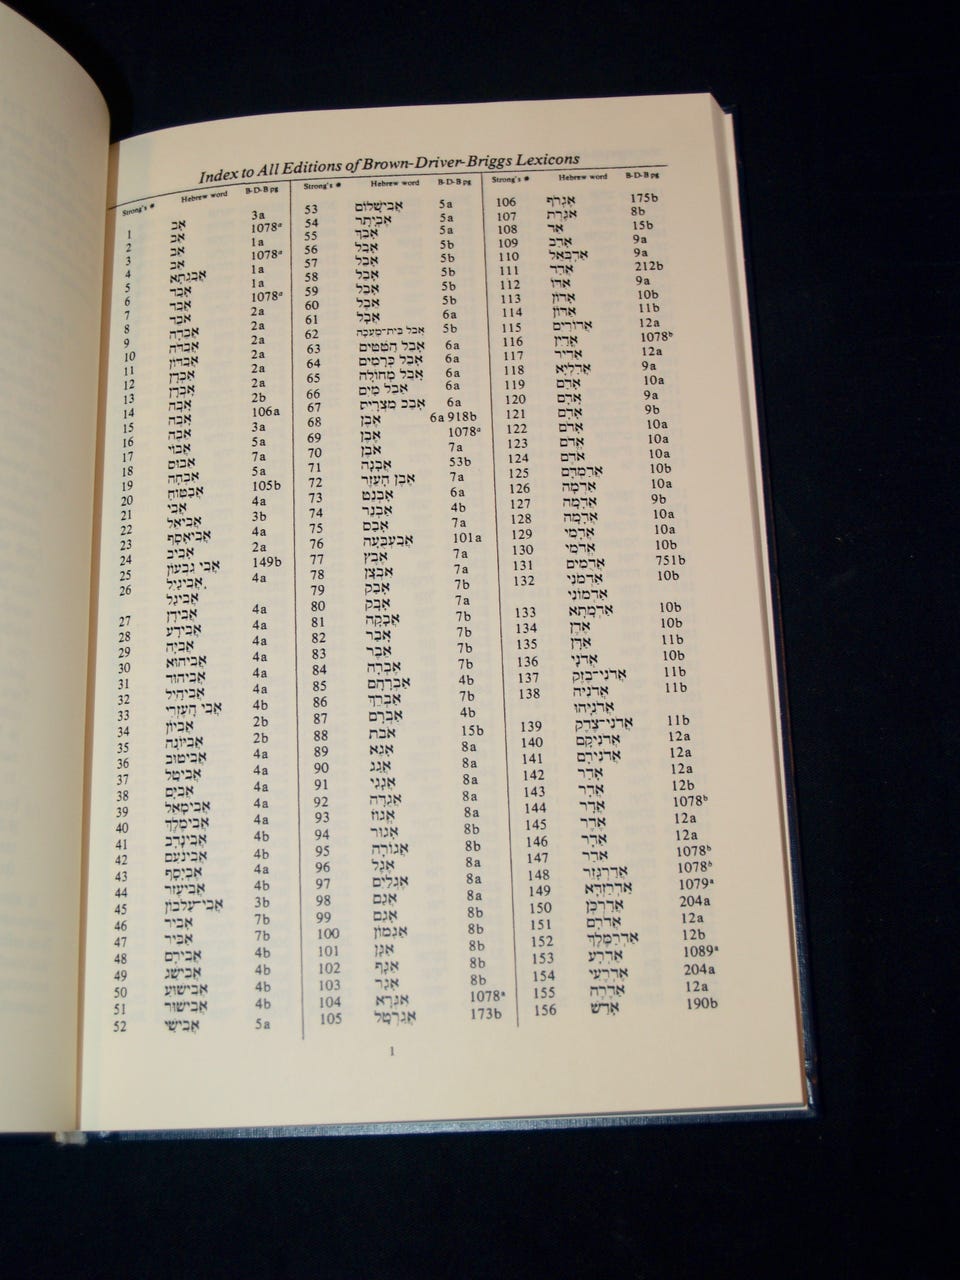 Index to All Editions of Brown-Driver-Briggs Lexicons
Strong's # Hebrew word B-D-B pg
1 אָב 3a
2 אַב 1078ᵃ
3 אֵב 1a
4 אֵב 1078ᵃ
5 אֲבַגְתָא 1a
6 אָבַד 1a
7 אֲבַד 1078ᵃ
8 אֹבֵד 2a
9 אֲבֵדָה 2a
10 אֲבַדֹּה 2a
11 אֲבַדּוֹן 2a
12 אַבְדָן 2a
13 אָבְדַן 2a
14 אָבָה 2b
15 אָבֶה 106a
16 אֵבֶה 3a
17 אֲבוֹי 5a
18 אֵבוּס 7a
19 אִבְחָה 5a
20 אֲבַטִּיחַ 105b
21 אֲבִי 4a
22 אֲבִיאֵל 3b
23 אֲבִיאָסָף 4a
24 אָבִיב 2a
25 אֲבִי גִבְעוֹן 149b
26 אֲבִיגַיִל, 4a
אֲבִיגַל
27 אֲבִידָן 4a
28 אֲבִידָע 4a
29 אֲבִיָּה 4a
30 אֲבִיהוּא 4a
31 אֲבִיהוּד 4a
32 אֲבִיחַיִל 4a
33 אֲבִי הָעֶזְרִי 4b
34 אֶבְיוֹן 2b
35 אֲבִיּוֹנָה 2b
36 אֲבִיטוּב 4a
37 אֲבִיטָל 4a
38 אֲבִיָּם 4a
39 אֲבִימָאֵל 4a
40 אֲבִימֶלֶךְ 4a
41 אֲבִינָדָב 4b
42 אֲבִינֹעַם 4b
43 אֶבְיָסָף 4a
44 אֲבִיעֶזֶר 4b
45 אֲבִי־עַלְבוֹן 3b
46 אָבִיר 7b
47 אַבִּיר 7b
48 אֲבִירָם 4b
49 אֲבִישַׁג 4b
50 אֲבִישׁוּעַ 4b
51 אֲבִישׁוּר 4b
52 אֲבִישַׁי 5a
Strong's # Hebrew word B-D-B pg
53 אֲבִישָׁלוֹם 5a
54 אֶבְיָתָר 5a
55 אָבַךְ 5a
56 אָבַל 5b
57 אָבֵל 5b
58 אָבֵל 5b
59 אָבֵל 5b
60 אֵבֶל 5b
61 אֲבָל 6a
62 אָבֵל בֵּית־מַעֲכָה 5b
63 אָבֵל הַשִּׁטִּים 6a
64 אָבֵל כְּרָמִים 6a
65 אָבֵל מְחוֹלָה 6a
66 אָבֵל מַיִם 6a
67 אָבֵל מִצְרַיִם 6a
68 אֶבֶן 6a 918b
69 אֶבֶן 1078ᵃ
70 אֹבֶן 7a
71 אֲבָנָה 53b
72 אֶבֶן הָעֵזֶר 7a
73 אַבְנֵט 6a
74 אַבְנֵר 4b
75 אָבַס 7a
76 אֲבַעְבֻּעָה 101a
77 אֶבֶץ 7a
78 אִבְצָן 7a
79 אָבַק 7b
80 אָבָק 7a
81 אֲבָקָה 7b
82 אָבַר 7b
83 אֵבֶר 7b
84 אֶבְרָה 7b
85 אַבְרָהָם 4b
86 אַבְרֵךְ 7b
87 אַבְרָם 4b
88 אֹבֹת 15b
89 אָגֵא 8a
90 אֲגַג 8a
91 אֲגָגִי 8a
92 אֲגֻדָּה 8a
93 אֱגוֹז 8a
94 אָגוּר 8b
95 אֲגוֹרָה 8b
96 אֶגֶל 8a
97 אֶגְלַיִם 8a
98 אֲגַם 8a
99 אָגֵם 8b
100 אַגְמוֹן 8b
101 אַגָּן 8b
102 אַגָּף 8b
103 אָגַר 8b
104 אִגְּרָא 1078ᵃ
105 אֲגַרְטָל 173b
Strong's # Hebrew word B-D-B pg
106 אֶגְרֹף 175b
107 אִגֶּרֶת 8b
108 אֵד 15b
109 אָדַב 9a
110 אַדְבְּאֵל 9a
111 אֲדַד 212b
112 אִדּוֹ 9a
113 אָדוֹן 10b
114 אַדּוֹן 11b
115 אֲדוֹרַיִם 12a
116 אֱדַיִן 1078ᵇ
117 אַדִּיר 12a
118 אֲדַלְיָא 9a
119 אָדַם 10a
120 אָדָם 9a
121 אָדָם 9b
122 אָדֹם 10a
123 אֱדֹם 10a
124 אֹדֶם 10a
125 אֲדַמְדָּם 10b
126 אַדְמָה 10a
127 אֲדָמָה 9b
128 אֲדָמָה 10a
129 אֲדָמִי 10a
130 אֱדֹמִי 10b
131 אֲדֻמִּים 751b
132 אַדְמֹנִי 10b
אַדְמוֹנִי
133 אַדְמָתָא 10b
134 אֶדֶן 10b
135 אַדָּן 11b
136 אֲדֹנָי 10b
137 אֲדֹנִי־בֶזֶק 11b
138 אֲדֹנִיָּה 11b
אֲדֹנִיָּהוּ
139 אֲדֹנִי־צֶדֶק 11b
140 אֲדֹנִיקָם 12a
141 אֲדֹנִירָם 12a
142 אָדַר 12a
143 אֲדָר 12b
144 אֲדָר 1078ᵇ
145 אֶדֶר 12a
146 אַדָּר 12a
147 אִדַּר 1078ᵇ
148 אֲדַרְגָּזֵר 1078ᵇ
149 אַדְרַזְדָּא 1079ᵃ
150 אֲדַרְכֹּן 204a
151 אֲדֹרָם 12a
152 אַדְרַמֶּלֶךְ 12b
153 אֶדְרָע 1089ᵃ
154 אֶדְרֶעִי 204a
155 אַדֶּרֶת 12a
156 אָדַשׁ 190b
1